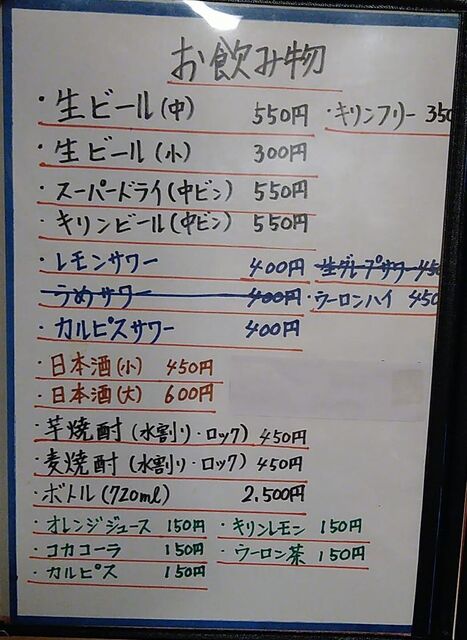 お飲み物
・生ビール(中) 550円 ・キリンフリー 350
・生ビール(小) 300円
・スーパードライ(中ビン) 550円
・キリンビール(中ビン) 550円
・レモンサワー 400円 ・生グレープサワー 450
・うめサワー 400円 ・ウーロンハイ 450
・カルピスサワー 400円
・日本酒(小) 450円
・日本酒(大) 600円
・芋焼酎(水割り・ロック) 450円
・麦焼酎(水割り・ロック) 450円
・ボトル(720ml) 2,500円
・オレンジジュース 150円 ・キリンレモン 150円
・コカコーラ 150円 ・ウーロン茶 150円
・カルピス 150円